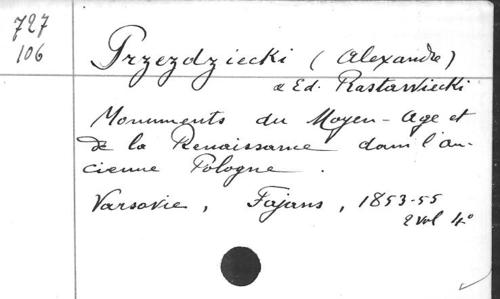 727
106
Przezdziecki (Alexandre)
& Ed. Rastawiecki
Monuments du Moyen-Age et
de la Renaissance dans l'an-
cienne Pologne.
Varsovie, Fajans, 1853-55
2 vol 4°